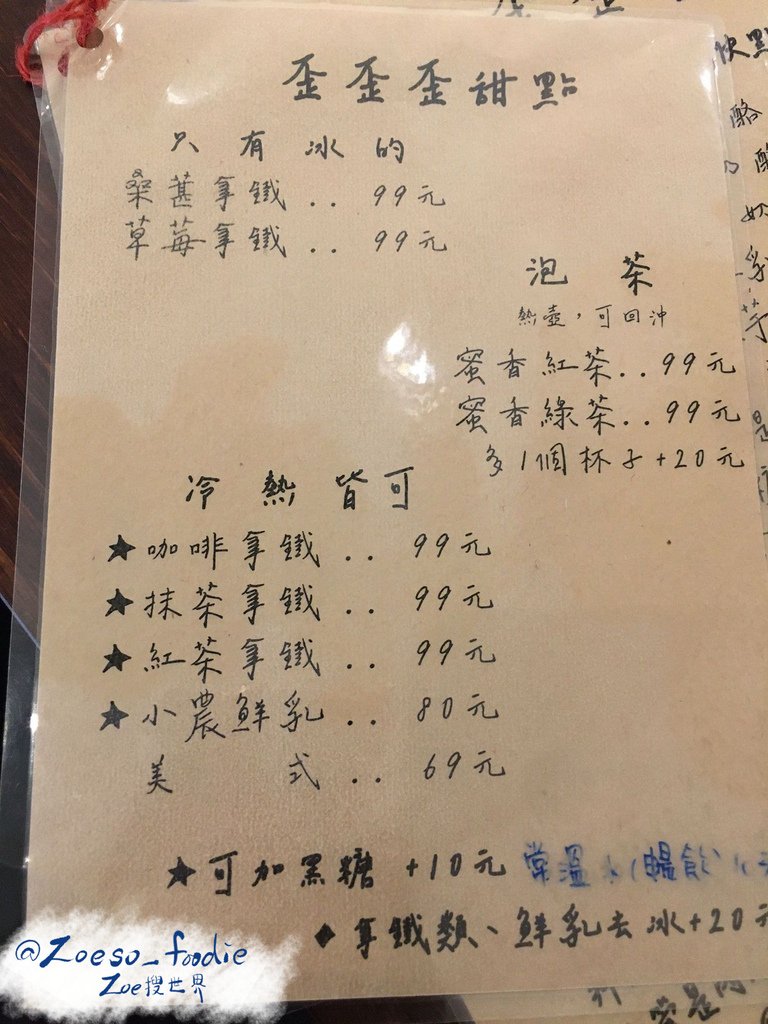 歪歪歪甜點
只有冰的
桑葚拿鐵.. 99元
草莓拿鐵.. 99元
泡茶
熱壺，可回沖
蜜香紅茶..99元
蜜香綠茶..99元
多1個杯子+20元
冷熱皆可
★咖啡拿鐵.. 99元
★抹茶拿鐵.. 99元
★紅茶拿鐵.. 99元
★小農鮮乳.. 80元
美式.. 69元
★可加黑糖 +10元 常溫
◆拿鐵類、鮮乳去冰+20元
@Zoeso_foodie
Zoe搜世界